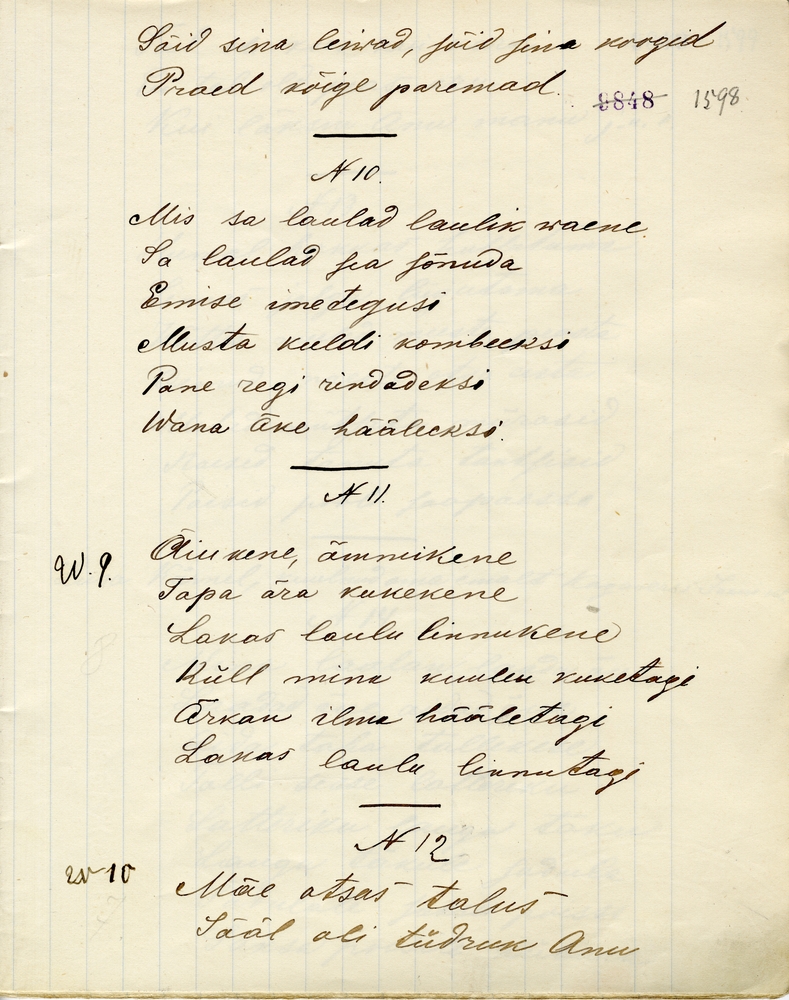 Sõid sina leiwad, sõid sina koogid
Praed kõige paremad.
9848 1598
N 10.
Mis sa laulad laulik waene.
Sa laulad sea sõnuda
Emise imetegusi
Musta kuldi kombeeksi
Pane regi rindadeksi
Wana äke hääleeksi.
N 11.
W. 9. Äiukene, ämmikene
Tapa ära kukekene
Lakas laulu linnukene
Küll mina kuulen kuketagi
Ärkan ilma hääletagi
Lakas laulu linnutagi
N 12
W 10 Mäe otsas talus
Sääl oli tüdruk Anu